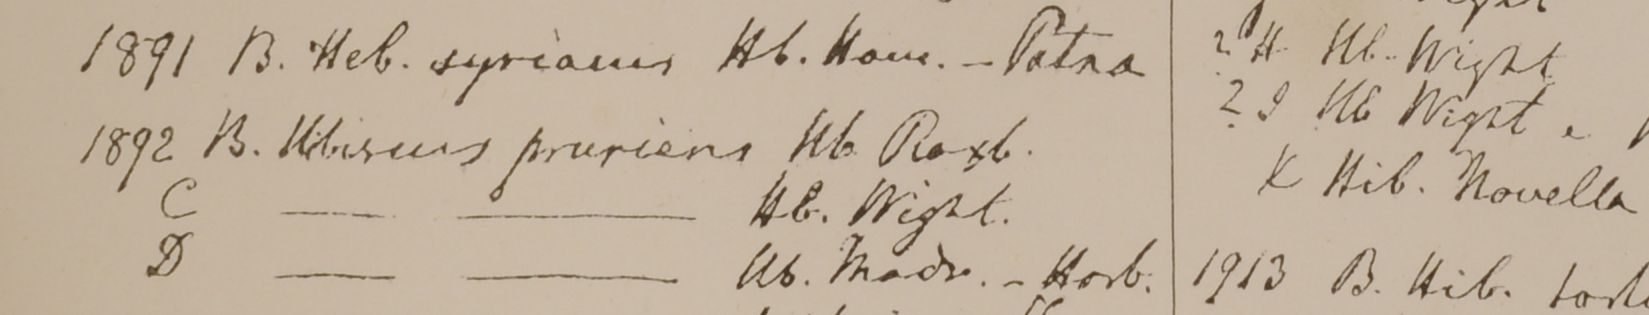 1891 B. Heb. syriacus Hb. Ham. - Patna
1892 B. Hibiscus pruriens Hb Roxb.
C — — Hb. Wight.
D — — Hb. Madr. - Horb.
? H Hb. Wight
? I Hb Wight
K Hib. Novella
1913 B. Hib.